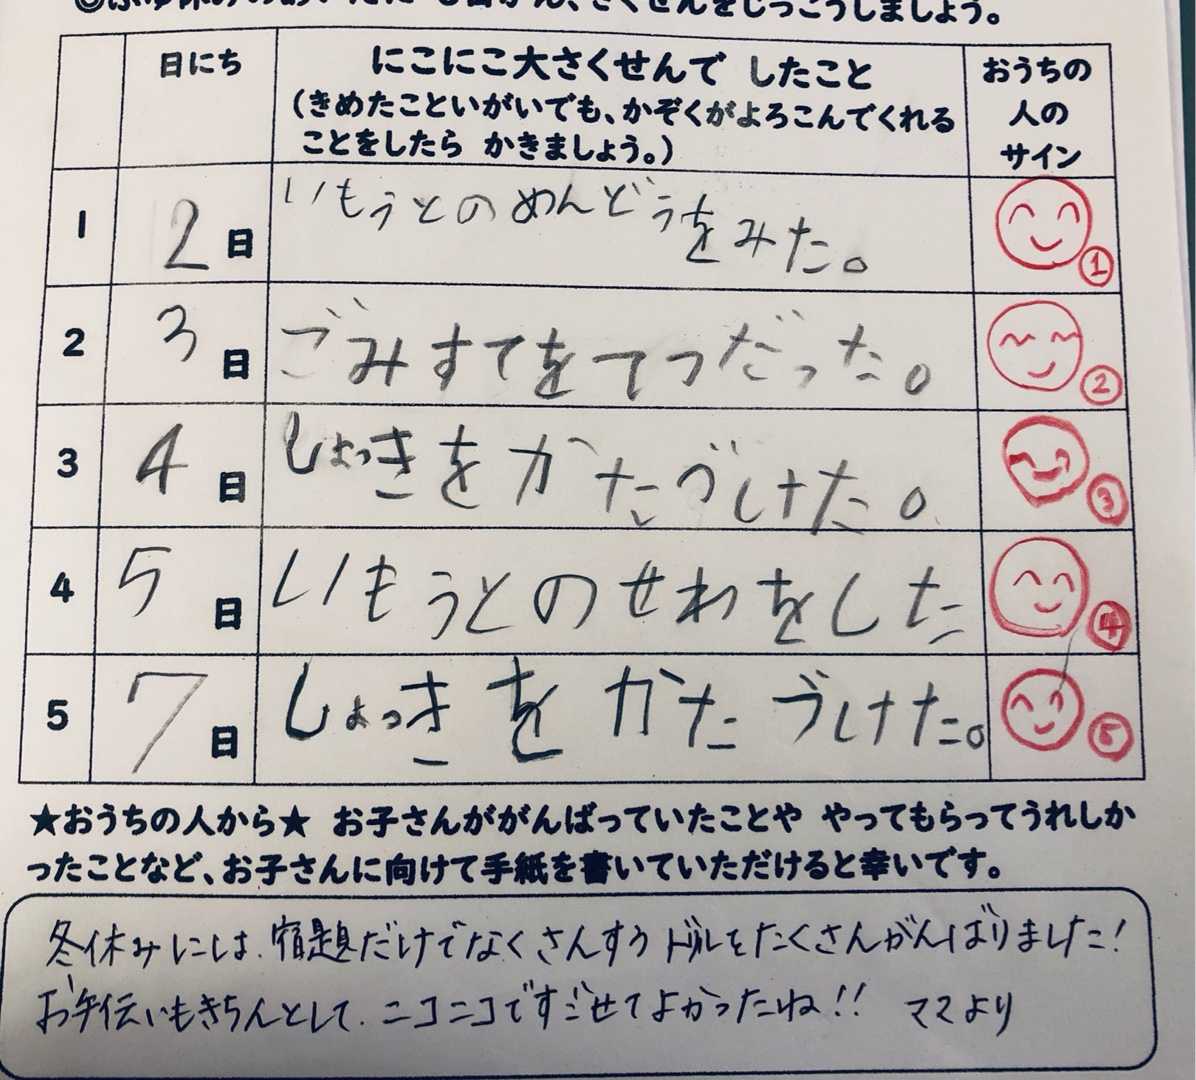 ◎ふゆ休みのあいだに 5日かん、さくせんをじっこうしましょう。
日にち
にこにこ大さくせんで したこと
(きめたこといがいでも、かぞくがよろこんでくれる
ことをしたら かきましょう。)
おうちの
人の
サイン
1 2日 いもうとのめんどうをみた。 ①
2 3日 ごみすてをてつだった。 ②
3 4日 しょっきをかたづけた。 ③
4 5日 いもうとのせわをした ④
5 7日 しょっきをかたづけた。 ⑤
★おうちの人から★ お子さんががんばっていたことや やってもらってうれしか
ったことなど、お子さんに向けて手紙を書いていただけると幸いです。
冬休みには、宿題だけでなくさんすうドリルをたくさんがんばりました!
お手伝いもきちんとして、ニコニコですごせてよかったね!! ママより